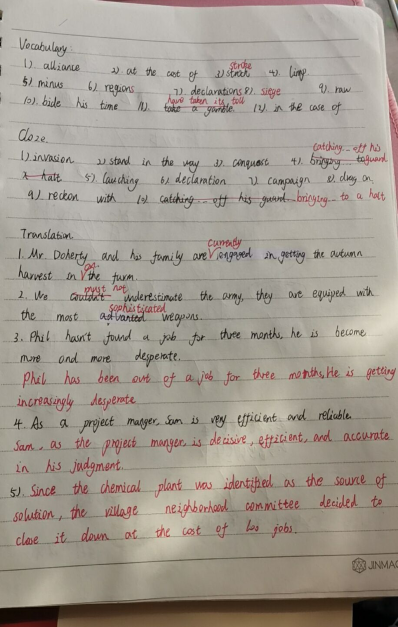 Vocabulary:
1) alliance 2) at the cost of 3) struck stroke 4) limp
5) minus 6) regions 7) declarations 8) siege 9) raw
10) bide his time 11) take a gamble have taken its toll 12) in the case of
Cloze.
1) invasion 2) stand in the way 3) conquest 4) bringing to guard catching off his
a halt 5) lauching 6) declaration 7) campaign 8) drag on
9) reckon with 10) catching off his guard bringing to a halt
Translation
1. Mr. Doherty and his family are currently engaged in getting the autumn
harvest in on the farm.
2. We couldn't must not underestimate the army, they are equiped with
the most advanted sophisticated weapons.
3. Phil hasn't found a job for three months, he is become
more and more desperate.
Phil has been out of a job for three months, He is getting
increasingly desperate
4. As a project manger, Sam is very efficient and reliable.
Sam, as the project manger, is decisive, efficient, and accurate
in his judgment.
5). Since the chemical plant was identified as the source of
solution, the village neighborhood committee decided to
close it down at the cost of 600 jobs.
JINMA